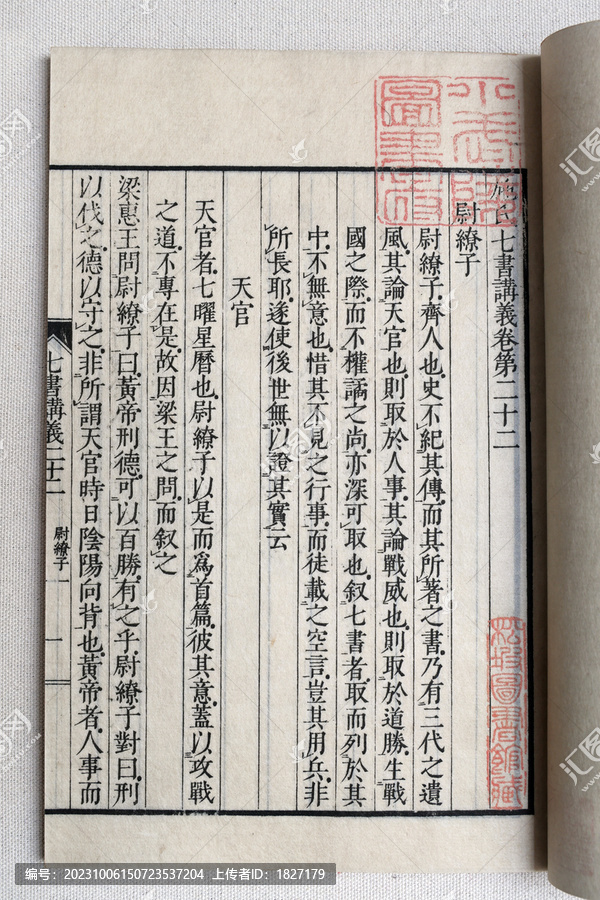 施氏七書講義卷第二十二
尉繚子
尉繚子齊人也史不紀其傳而其所著之書乃有三代之遺
風其論天官也則取於人事其論戰威也則取於道勝生戰
國之際而不權譎之尚亦深可取也叙七書者取而列於其
中不無意也惜其不見之行事而徒載之空言豈其用兵非
所長耶遂使後世無以證其實云
天官
天官者七曜星曆也尉繚子以是而爲首篇彼其意蓋以攻戰
之道不專在是故因梁王之問而叙之
梁惠王問尉繚子曰黃帝刑德可以百勝有之乎尉繚子對曰刑
以伐之德以守之非所謂天官時日陰陽向背也黃帝者人事而
七書講義二十二 尉繚子 一
松坡圖書館藏
汇图网
编号：20231006150723537204 上传者ID：1827179